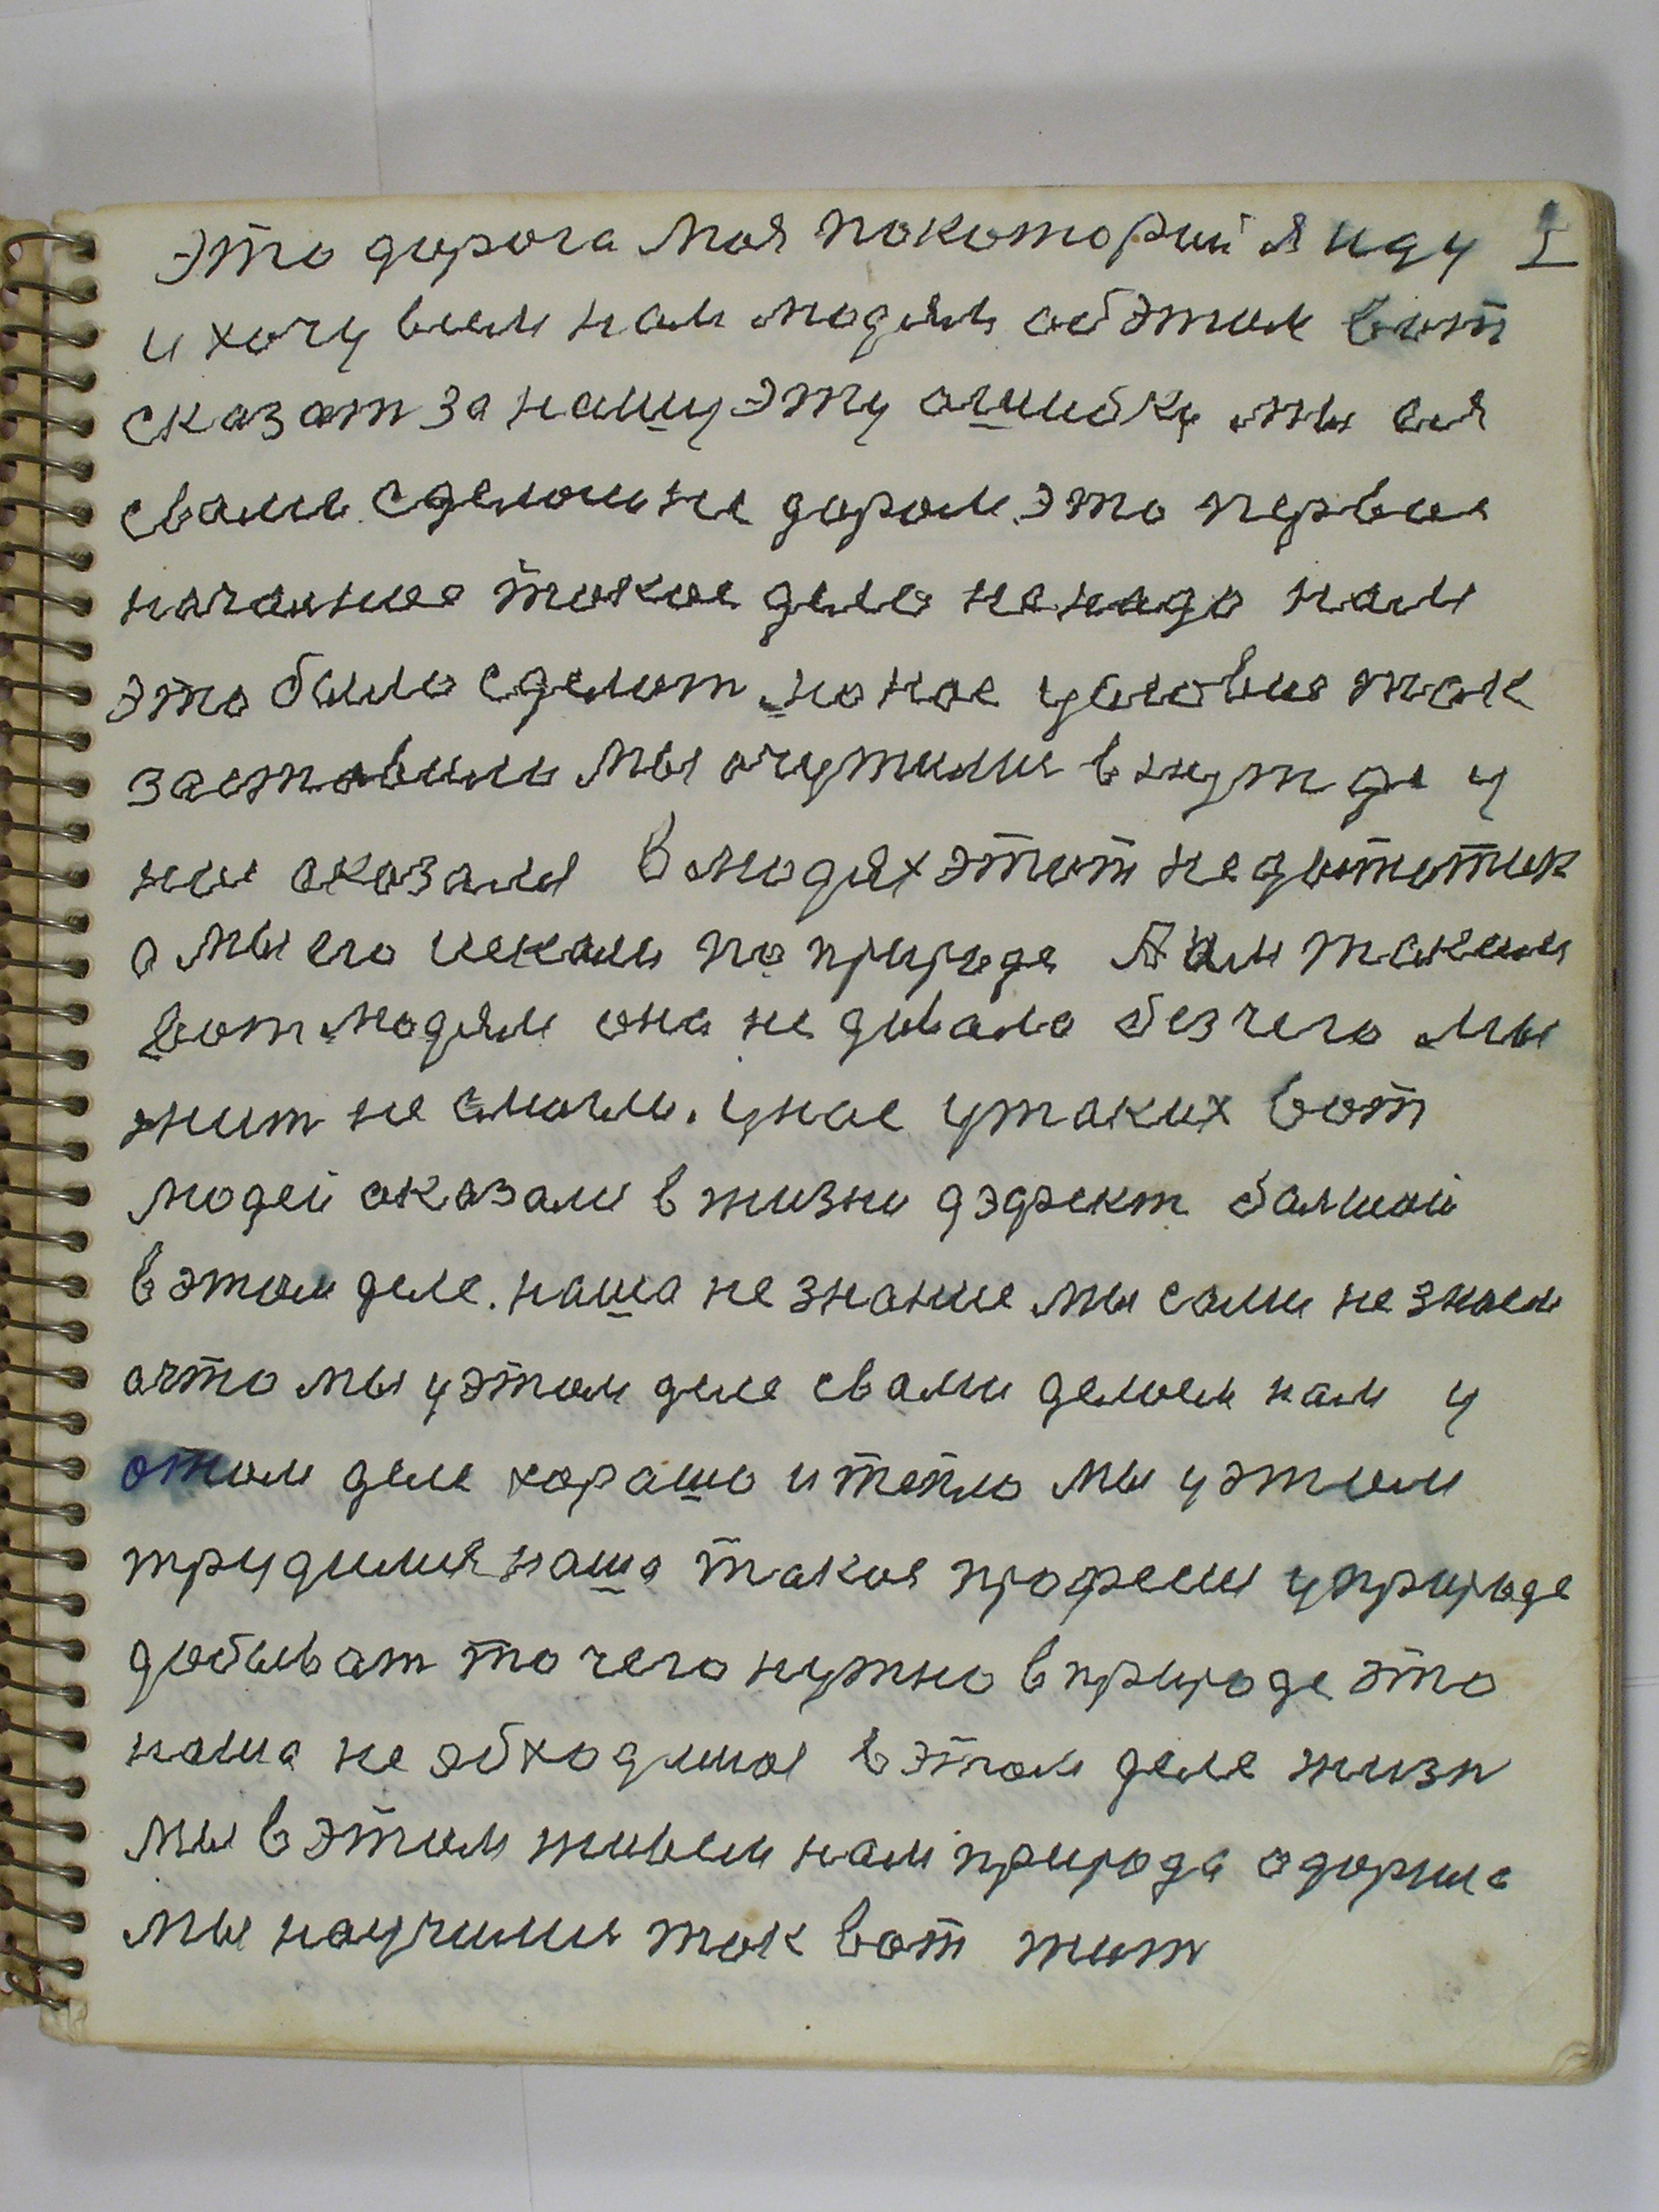 Это дорога моя покоторий я иду 1
и хочу всем нам людям обэтом вот
сказат за нашу эту ошибку мы ея
свами сделоли не даром это первоя
начальноя такое дело ненадо нам
это было сделат но нас условия так
заставили мы очутилис внутре у
нас оказалс В людях этот недостоток
а мы его искали по природе А им таким
вот людям она не давала безчего мы
жит не смогли. унас утаких вот
людей оказалс в жизни дэфект балшой
вэтом деле. наша не знание мы сами не знаем
ачто мы уэтом деле свами делоем нам у
этом деле харашо итепло мы уэтом
трудимся наша такоя професи уприроде
добыват то чего нужно вприроде это
наша не обходимая вэтом деле жизн
мы вэтом живем нам природа одорила
мы научилис так вот жит